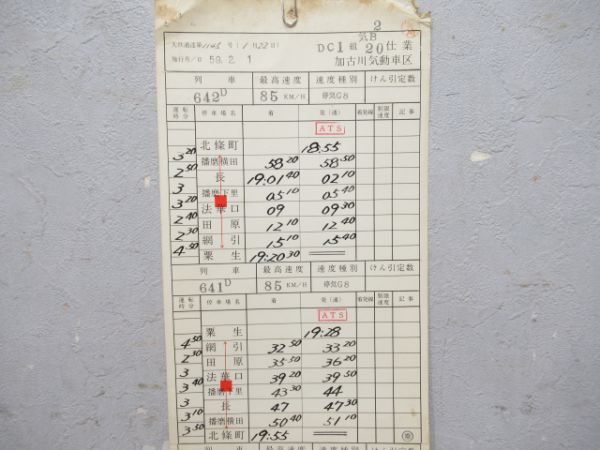 2
気B
大鉄運達第1145号(1月22日)
DC1組 20仕業
施行月/日 59.2.1
加古川気動車区
列車 最高速度 速度種別 けん引定数
642D 85KM/H 停気G8
運転時分 停車場名 着 発(通) 着発線 制限速度 記事
ATS
北條町 18:55
3 20
播磨横田 58 20 58 50
2 50
長 19:01 40 02 10
3
播磨下里 05 10 05 40
3 20
法華口 09 09 30
2 40
田原 12 10 12 40
2 30
網引 15 10 15 40
4 50
粟生 19:20 30
列車 最高速度 速度種別 けん引定数
641D 85KM/H 停気G8
運転時分 停車場名 着 発(通) 着発線 制限速度 記事
ATS
粟生 19:28
4 50
網引 32 50 33 20
2 30
田原 35 50 36 20
3
法華口 39 20 39 50
3 40
播磨下里 43 30 44
3
長 47 47 30
3 10
播磨横田 50 40 51 10
3 50
北條町 19:55